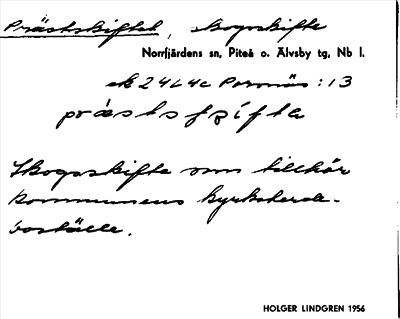 Prästskiftet, skogskifte
Norrfjärdens sn, Piteå o. Älvsby tg, Nb l.
ek 24L4c Porsnäs :13
präst s f ʃ í f t a
Skogsskifte som tillhör
kommunens kyrkoherde-
boställe.
HOLGER LINDGREN 1956